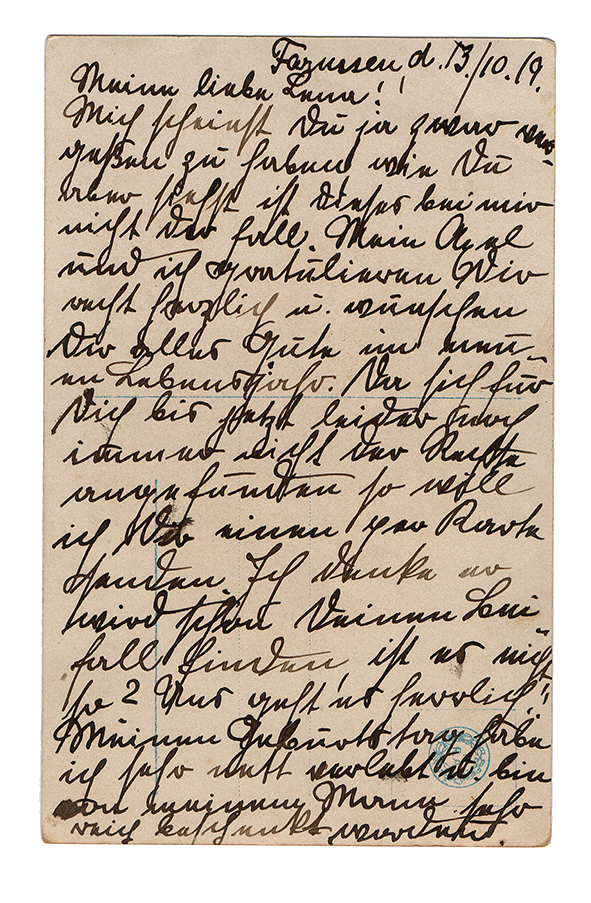 d. 13./10.19.
Meine liebe Lena!!
Mich scheinst Du ja zwar ver-
geßen zu haben wie Du
aber siehst ist dieses bei mir
nicht der Fall. Mein Axel
und ich gratulieren Dir
recht herzlich u. wünschen
Dir alles Gute im neu-
en Lebensjahr. Da sich für
Dich bis jetzt leider noch
immer nicht der Rechte
angefunden so will
ich Dir einen per Karte
senden. Ich denke er
wird schon Deinen Bei
fall finden, ist es nicht
so? Uns geht's herrlich!
Meinen Geburtstag habe
ich sehr nett verlebt u. bin
von meinem Mann sehr
reich beschenkt worden.